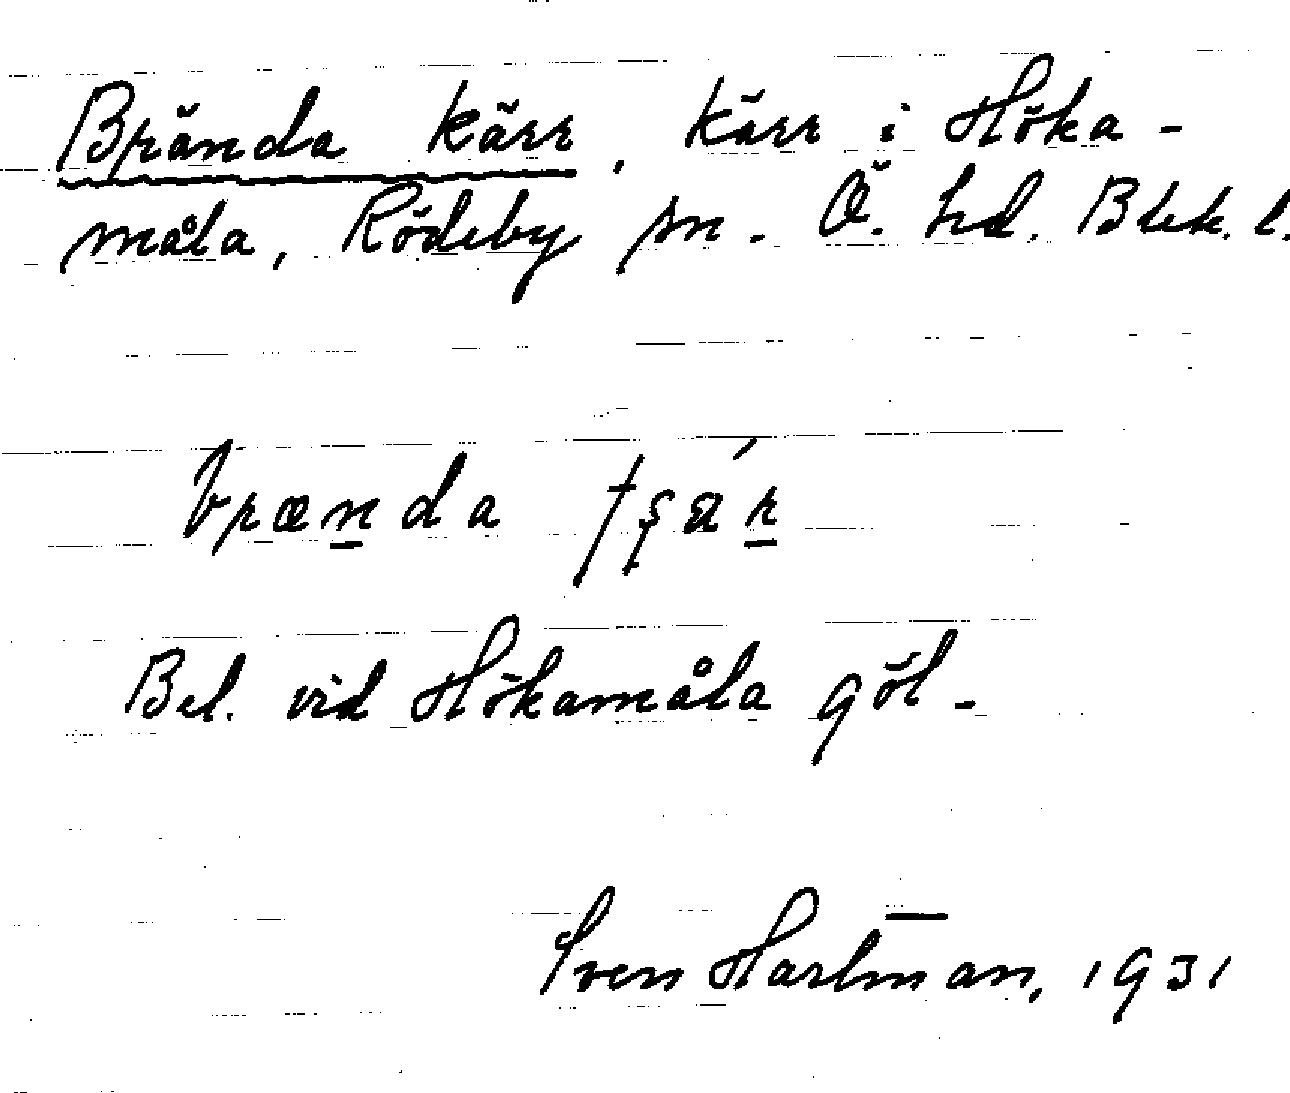 Brända kärr, kärr i Höka-
måla, Rödeby sn. Ö. hd. Blek. l.
brænda
Bel. vid Hökamåla göl.
Sven Hartman, 1931